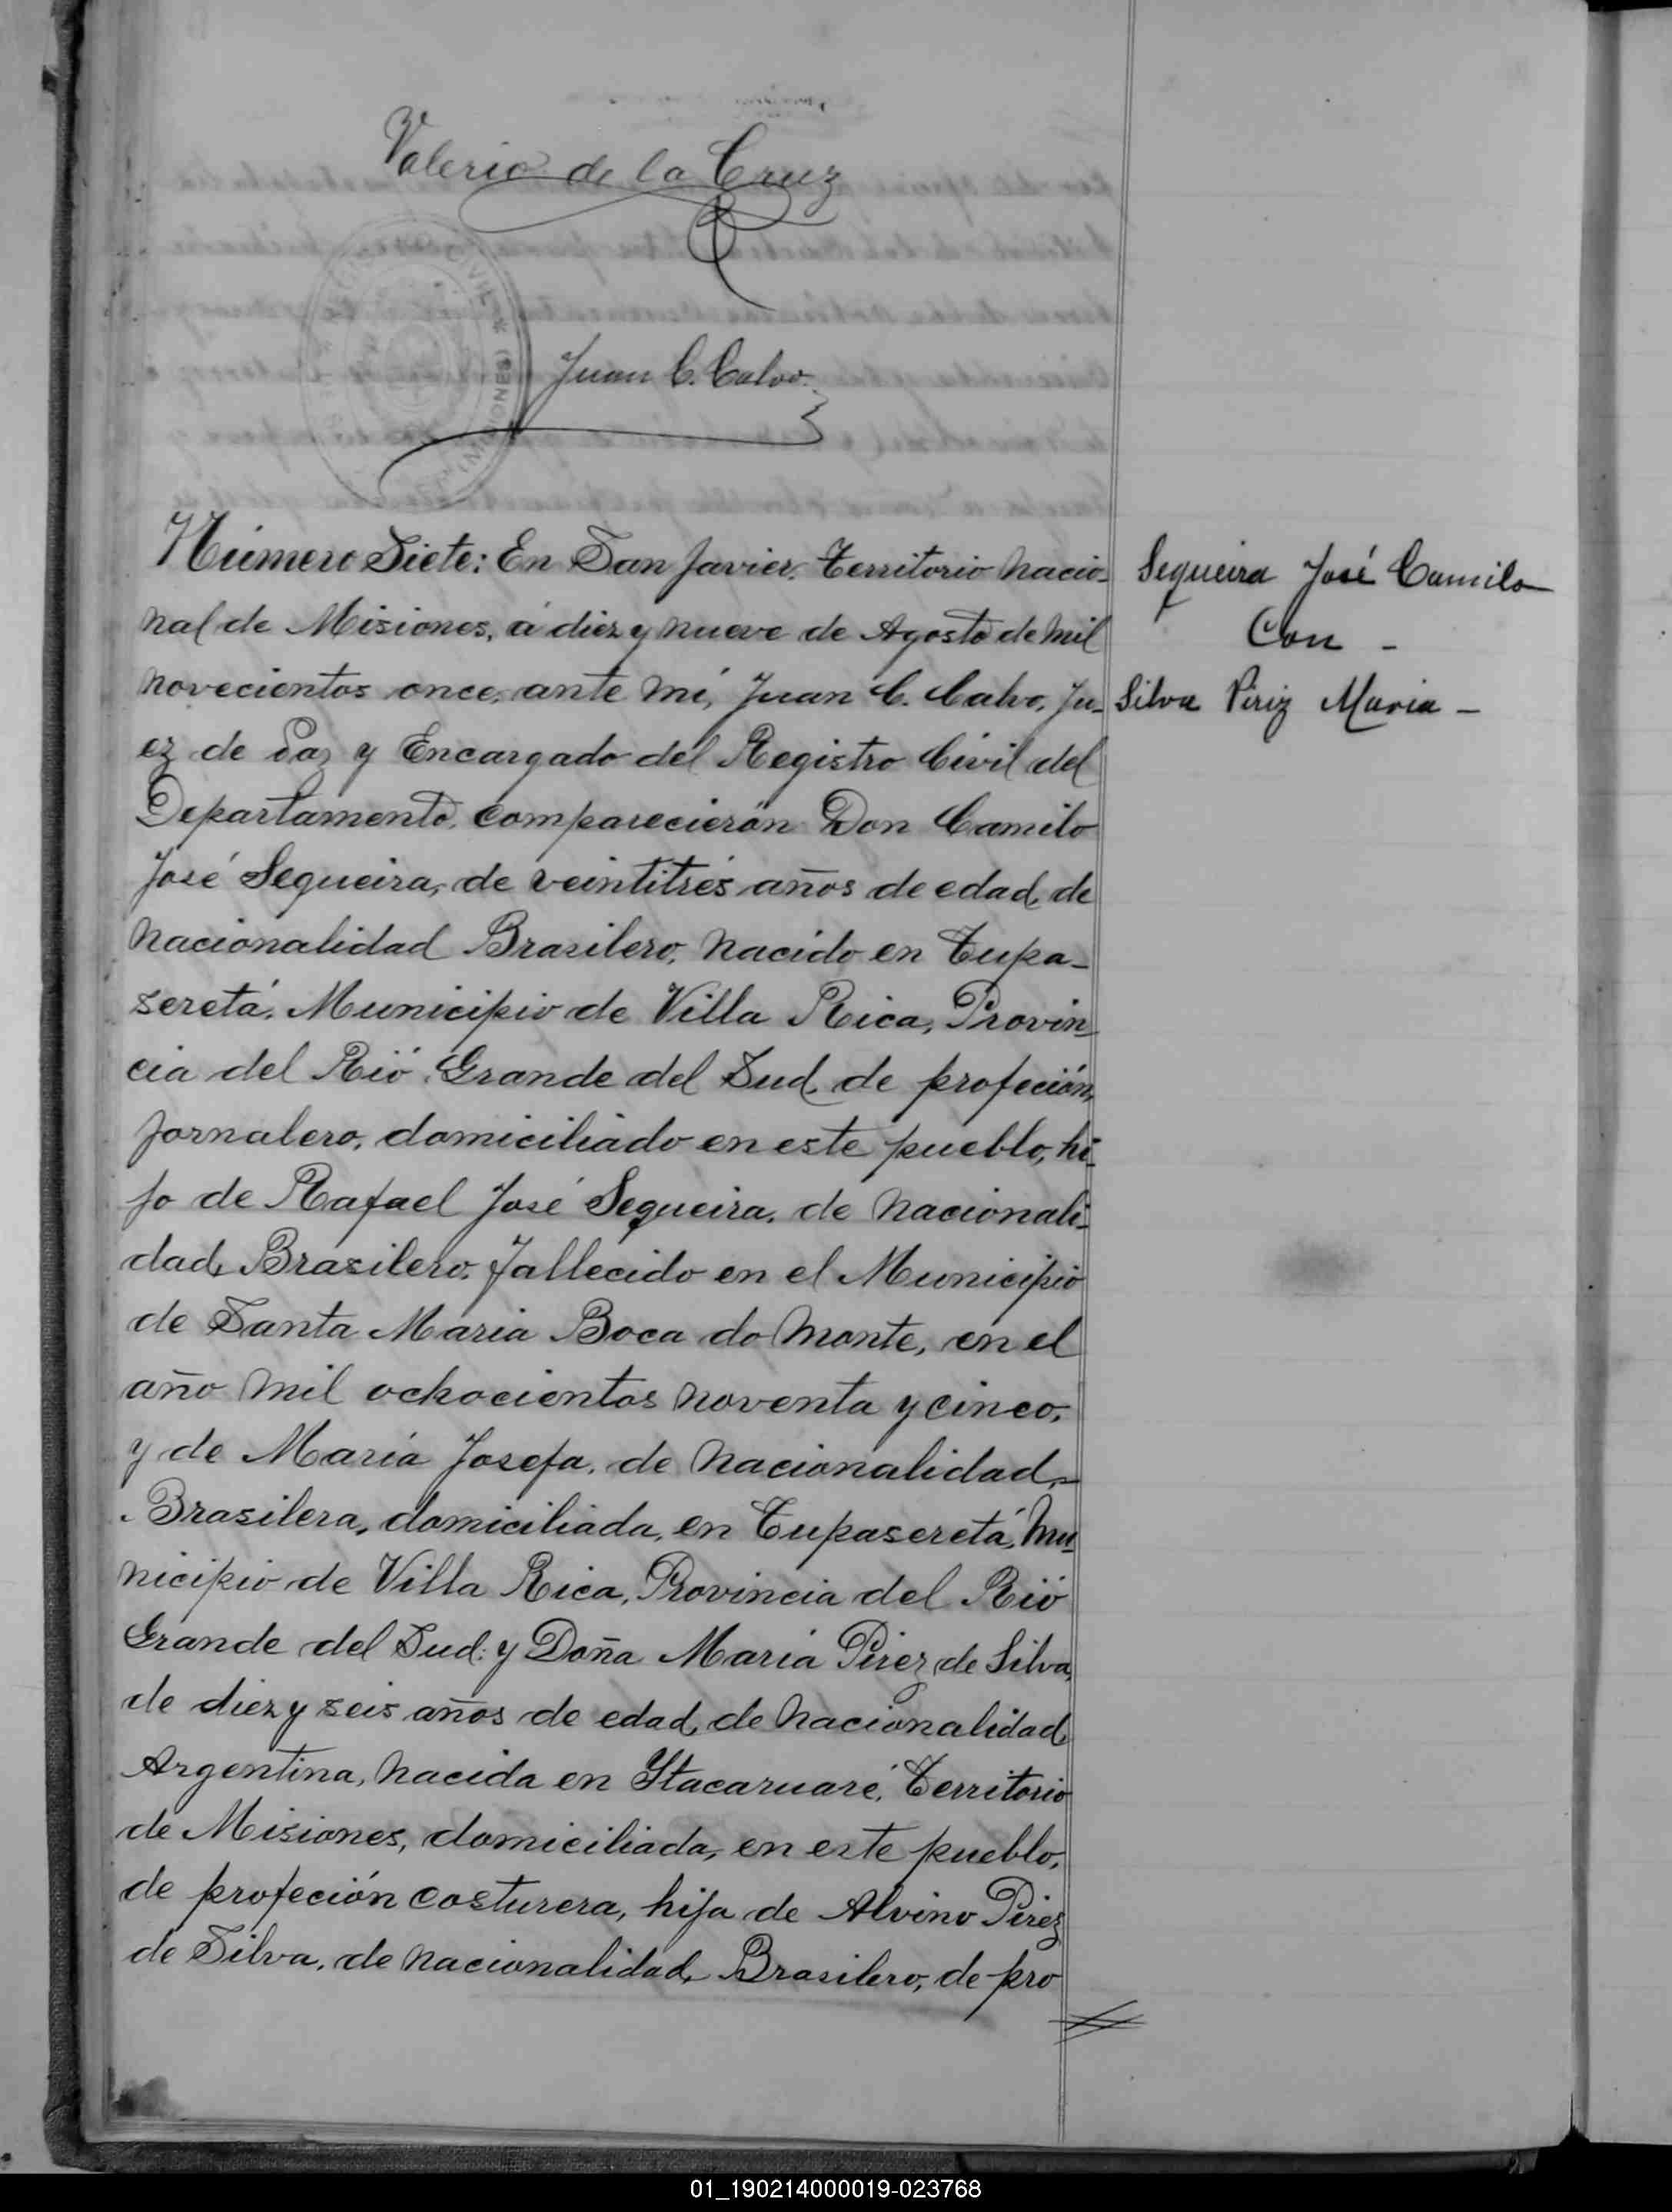 Valerio de la Cruz
CIVIL * (MISIONES)
Juan C. Calvo
Número Siete: En San Javier, Territorio Nacio-
nal de Misiones, á diez y nueve de Agosto de mil
novecientos once, ante mí, Juan C. Calvo, Ju-
ez de Paz y Encargado del Registro Civil del
Departamento, comparecierón Don Camilo
José Sequeira, de veintitrés años de edad, de
nacionalidad Brasilero, nacido en Tupa-
seretá, Municipio de Villa Rica, Provin
cia del Rió Grande del Sud, de profeción,
jornalero, domiciliado en este pueblo, hi-
jo de Rafael José Sequeira, de nacionali-
dad, Brasilero, fallecido en el Municipio
de Santa Maria Boca do Monte, en el
año mil ochocientos noventa y cinco,
y de María Josefa, de nacionalidad,
Brasilera, domiciliada, en Tupaseretá, Mu
nicipio de Villa Rica, Provincia del Rió
Grande del Sud: y Doña María Pirez de Silva,
de diez y seis años de edad, de nacionalidad
Argentina, nacida en Ytacaruaré, Territorio
de Misiones, domiciliada, en este pueblo,
de profeción costurera, hija de Alvino Pirez
de Silva, de nacionalidad, Brasilero, de pro
Sequeira José Camilo
Con -
Silva Piriz Maria -
01_190214000019-023768